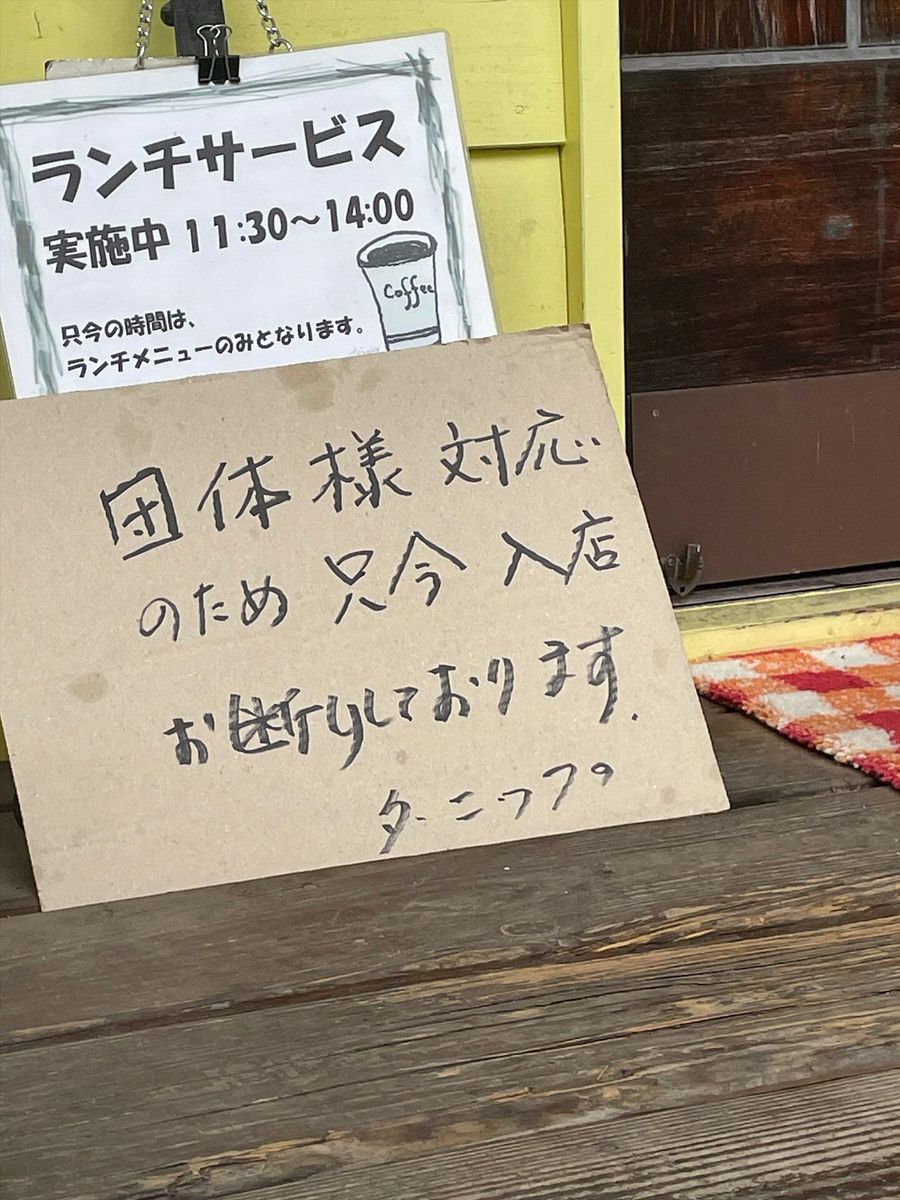 ランチサービス
実施中 11:30～14:00
Coffee
只今の時間は、
ランチメニューのみとなります。
団体様 対応
のため 只今 入店
お断りしております.
ターニップ